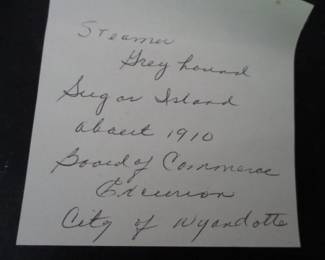 Steamer
Greyhound
Sugar Island
about 1910
Board of Commerce
Excursion
City of Wyandotte